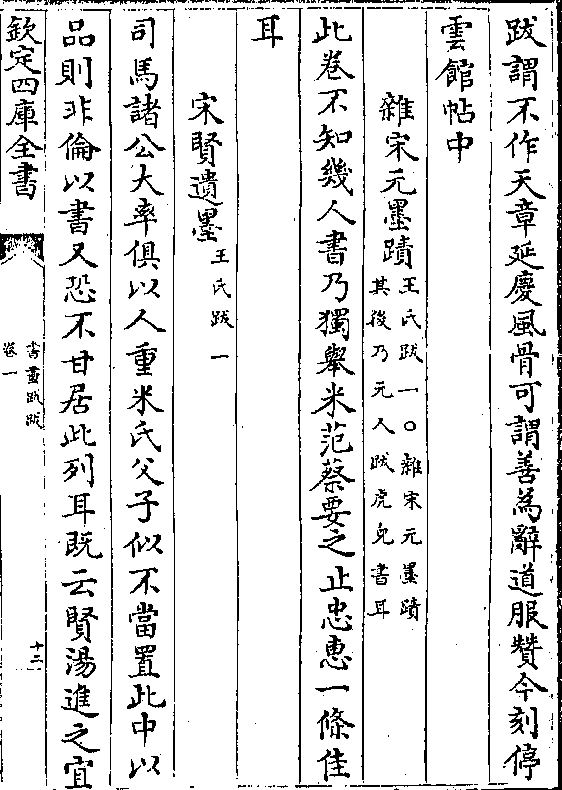 跋謂不作天章延慶風骨可謂善為辭道服贊今刻停
雲館帖中
雜宋元墨蹟王氏跋一○雜宋元墨蹟
其後乃元人跋虎兒書耳
此卷不知幾人書乃獨舉米范蔡要之止忠惠一條佳
耳
宋賢遺墨王氏跋一
司馬諸公大率俱以人重米氏父子似不當置此中以
品則非倫以書又恐不甘居此列耳既云賢湯進之宜
欽定四庫全書
書畫跋跋
卷一
十二